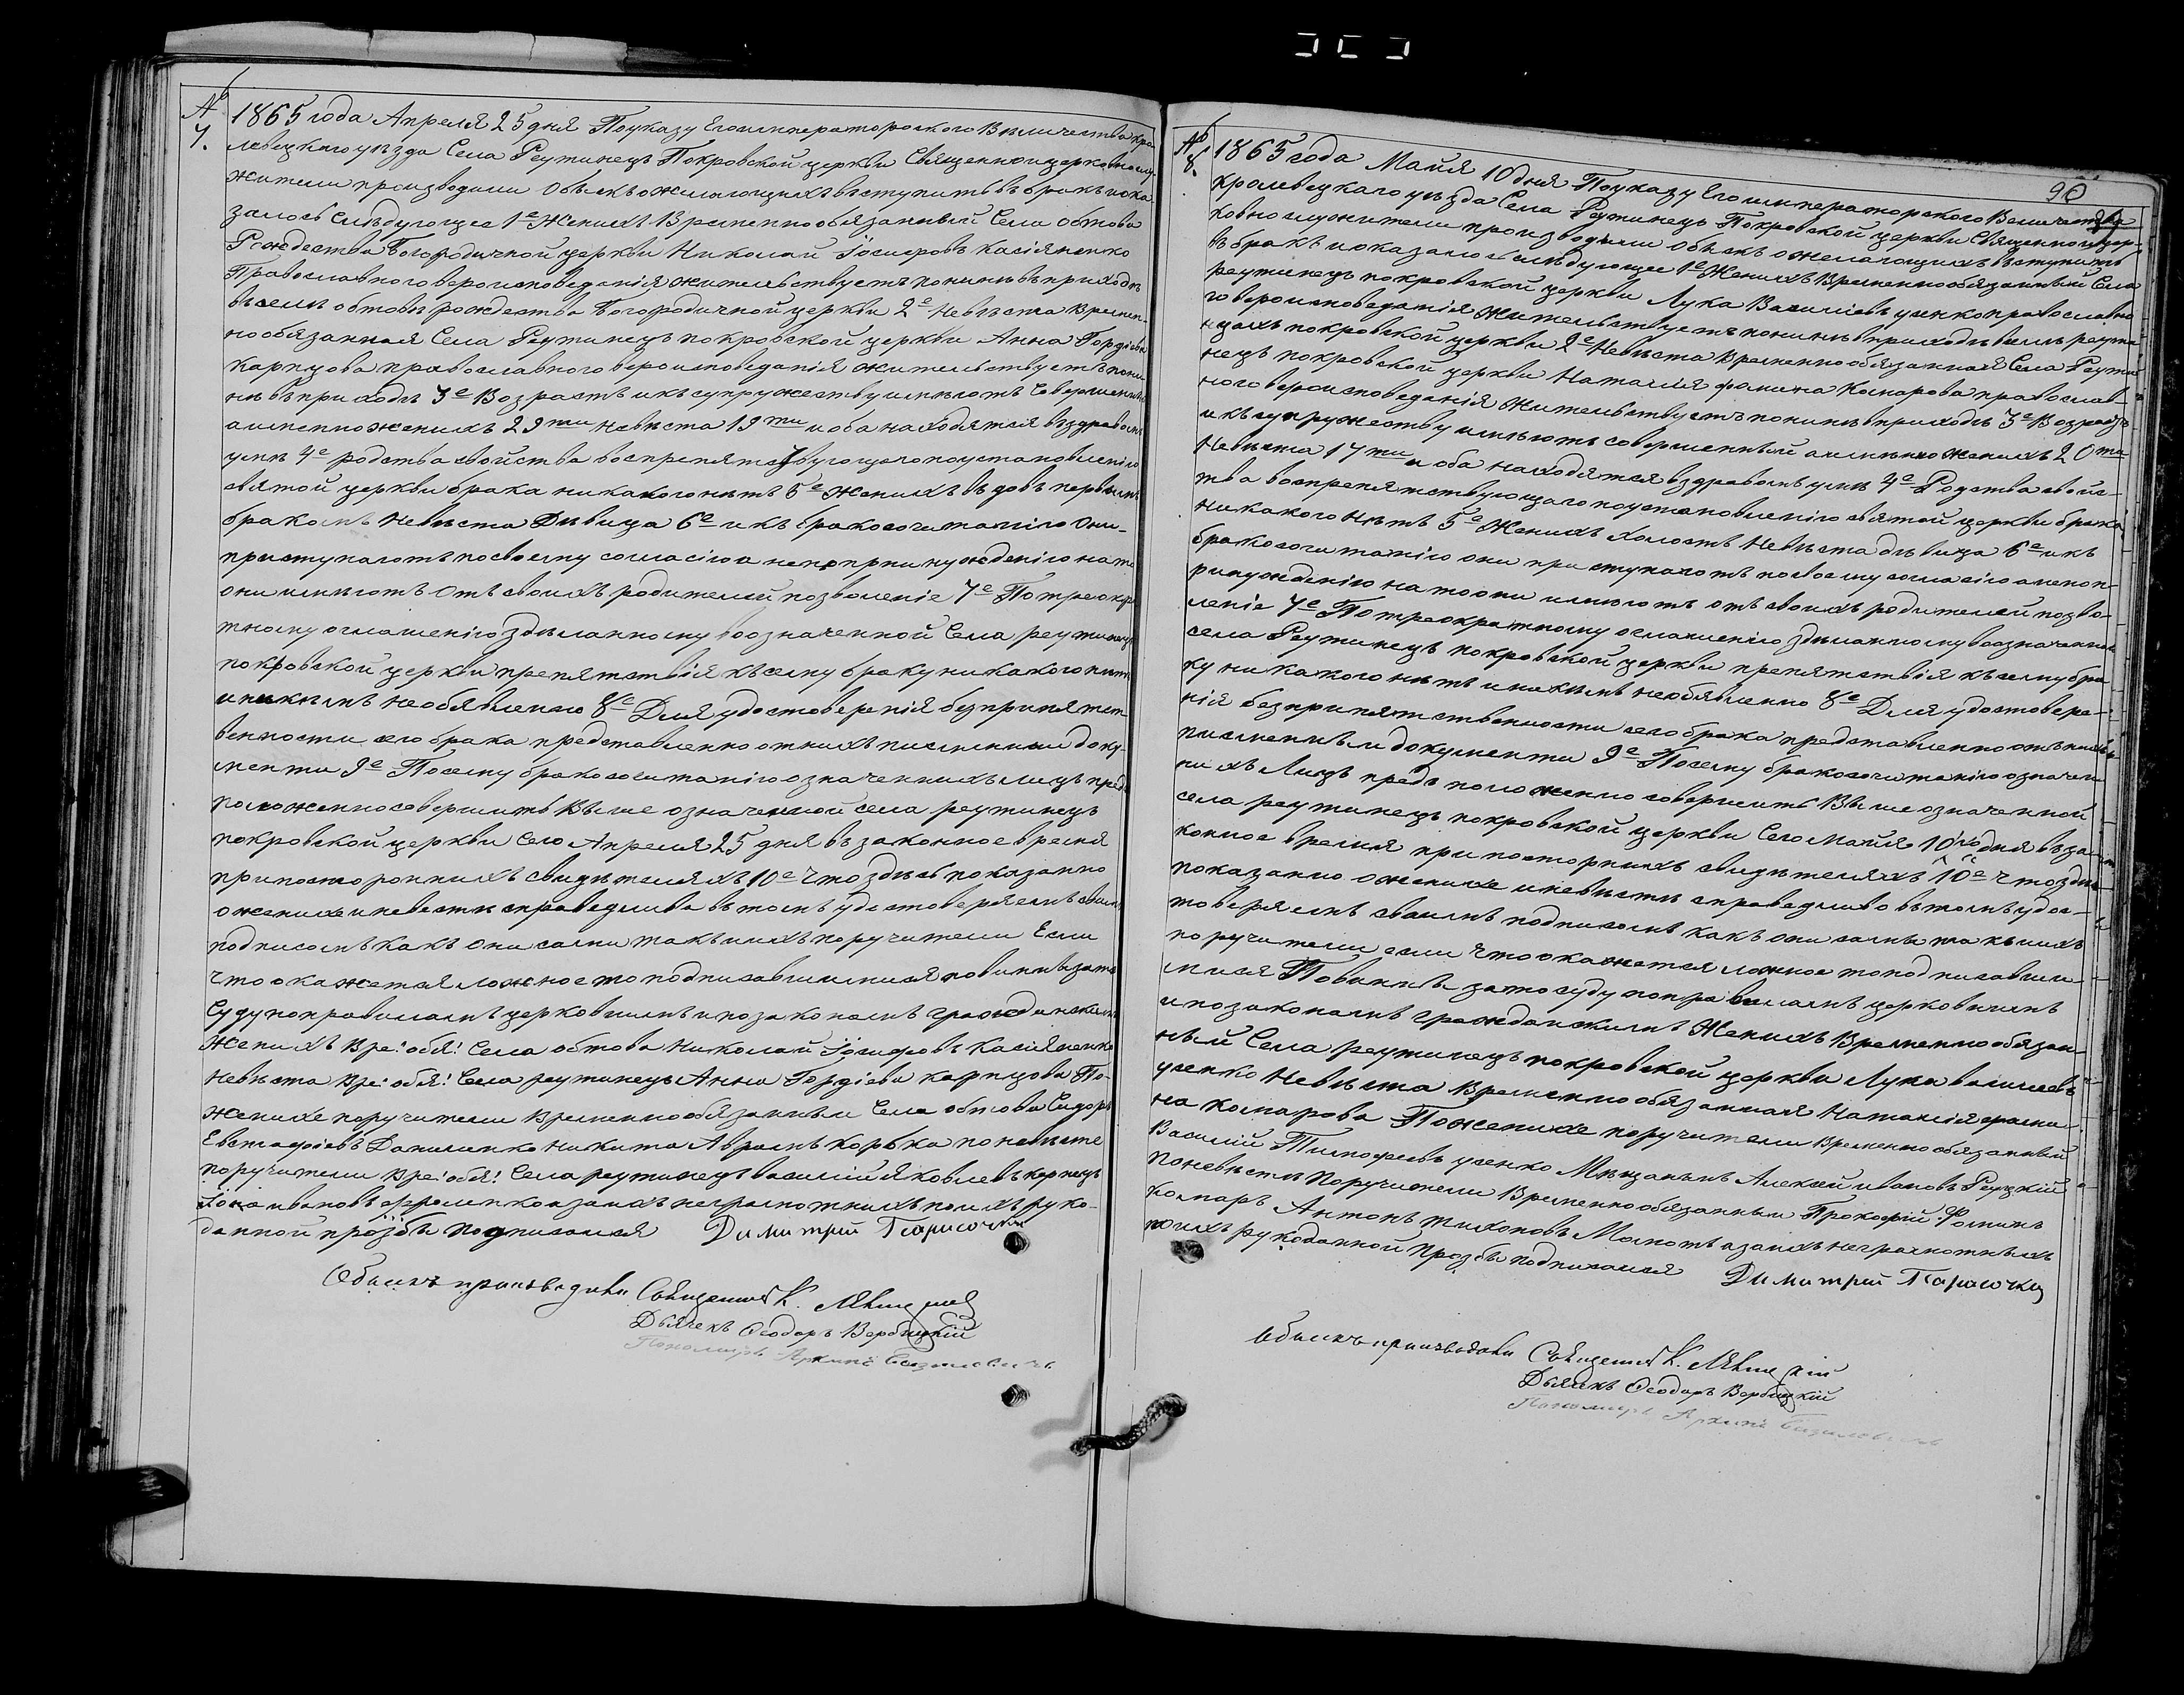 № 7.
1865 года Апреля 25 дня По указу Его императорского Величества кро
левецкаго уезда Села Реутинец Покровской церкви Священно и церковнослу
жители производили Обыск о желающих вступить в брак и ока
залось Следующее 1е Жених Временно обязанный Села Обтова
Рождества Богородичной церкви Николай Иосифов Касияненко
Православного вероисповедания жительствует поныне в приходе
в селе обтове рождества Богородичной церкви 2е Невеста Времен-
но обязанная Села Реутинец покровской церкви Анна Гордиева
Карпцова православного вероисповедания жительствует поны
не в приходе 3е Возраст и к супружеству имеют Совершенный
а именно жених 29ти невеста 19ти и оба находятся в здравом
уме 4е родства свойства воспрепятствующаго по установлению
святой церкви брака никакого нетъ 5е Жених вдов первым
браком Невеста Девица 6е и к бракосочитанию Они-
приступают по своему согласию а не по принуждению на то
они имеютъ от своих родителей позволение 7е По треокра
тному оглашению зделанному воозначенной Села реутинец
покровской церкви препятствия к сему браку никакого нет
и никем необявленно 8е Для удостоверения безпрпятст
венности сего брака представленно от них писменныи доку-
менти 9е По сему бракосочитанию означенных лиц пред
положенно совершить Выше означенной села реутинец
покровской церкви Сего Апреля 25 дня в законное время
при посторонних свидетелях 10е Что здесь показанно
о женихе и невесте справедливо в том удостоверяем своим
подписом как они сами так и их поручители Если
что окажется ложное то подписавшиися повинны за то
Суду по правилам церковным и по законам гражданским
Жених Вре: обя: Села обтова Николай Иосифов Касияненко
Невеста Вре: обя: Села реутинец Анна Гордиева карпцова По-
женихе поручители Временно обязанныи Села обтова Сидор
Евстафиев Даниленко Никита Аврам Корбка по невесте
поручители Вре: обя: Села реутинец василий яковлев карпец
иванов ефременко а за их неграмотных по их руко-
данной прозбе подписался Димитрий Парисочка
Обыск производили Священник К.
Дьячек Феодор Вербицкий
Пономарь Архип Базилевич
90
№ 8.
1865 года Майя 10 дня По указу Его императорского Величества
кролевецкаго уезда Села Реутинец Покровской церкви Священно и цер-
ковнослужители производили Обыск о желающих вступить
в брак и оказалось следующее 1е Жених Временно обязанный Села
реутинец покровской церкви Лука Василиев усенко православно
го вероисповедания жительствует поныне в приходе в селе реути
нцах покровской церкви 2е Невеста Временно обязанная Села Реути
нец покровской церкви Наталия фомина Комарова православ-
ного вероисповедания жительствует поныне в приходе 3е Возраст
и к супружеству имеють совершенный а именно жених 20ти
Невеста 17ти и оба находятся в здравом уме 4е Родства свойс-
тва воспрепятствующаго по установлению святой церкви брака
никакого нет 5е Жених холост Невеста девица 6е и к
бракосочитанию они приступають по своему согласию а не по п-
ринуждению на то они имеють от своих родителей позво-
ление 7е По треократному оглашению зделанному воозначенной
села Реутинец покровской церкви препятствия к сему бра
ку никакого неть и никем необявленно 8е Для удостовере-
ния безпрпятственности сего брака представленно от них
писменныи документи 9е По сему бракосочитанию означен
них Лиц предположенно совершить Выше означенной
села реутинец покровской церкви Сего майя 10го дня в за-
конное время при посторних свидетелях 10е Что здесь
показанно о женихе и невесте справедливо в том удос-
товеряем своим подписом как они сами так и их
поручители если что окажется ложное то подписавши-
мися Повинны за то суду по правилам церковным
и по законам гражданским Жених Временно обязан-
ный Села реутинец покровской церкви Лука василиев
усенко Невеста Временно обязанная Наталия фоми-
на комарова По женихе поручители Временно обязанный
Василий Тимофеев усенко Мещанин Алексей иванов Реуцкий
По невесте Поручители Временно обязанныи Прокофий Фомин
комарь Антон тихонов а за их неграмотных
по их рукоданной прозбе подписался Димитрий Парисочка
Обыск производили Священник К.
Дьячек Феодор Вербицкий
Пономарь Архип Базилевич